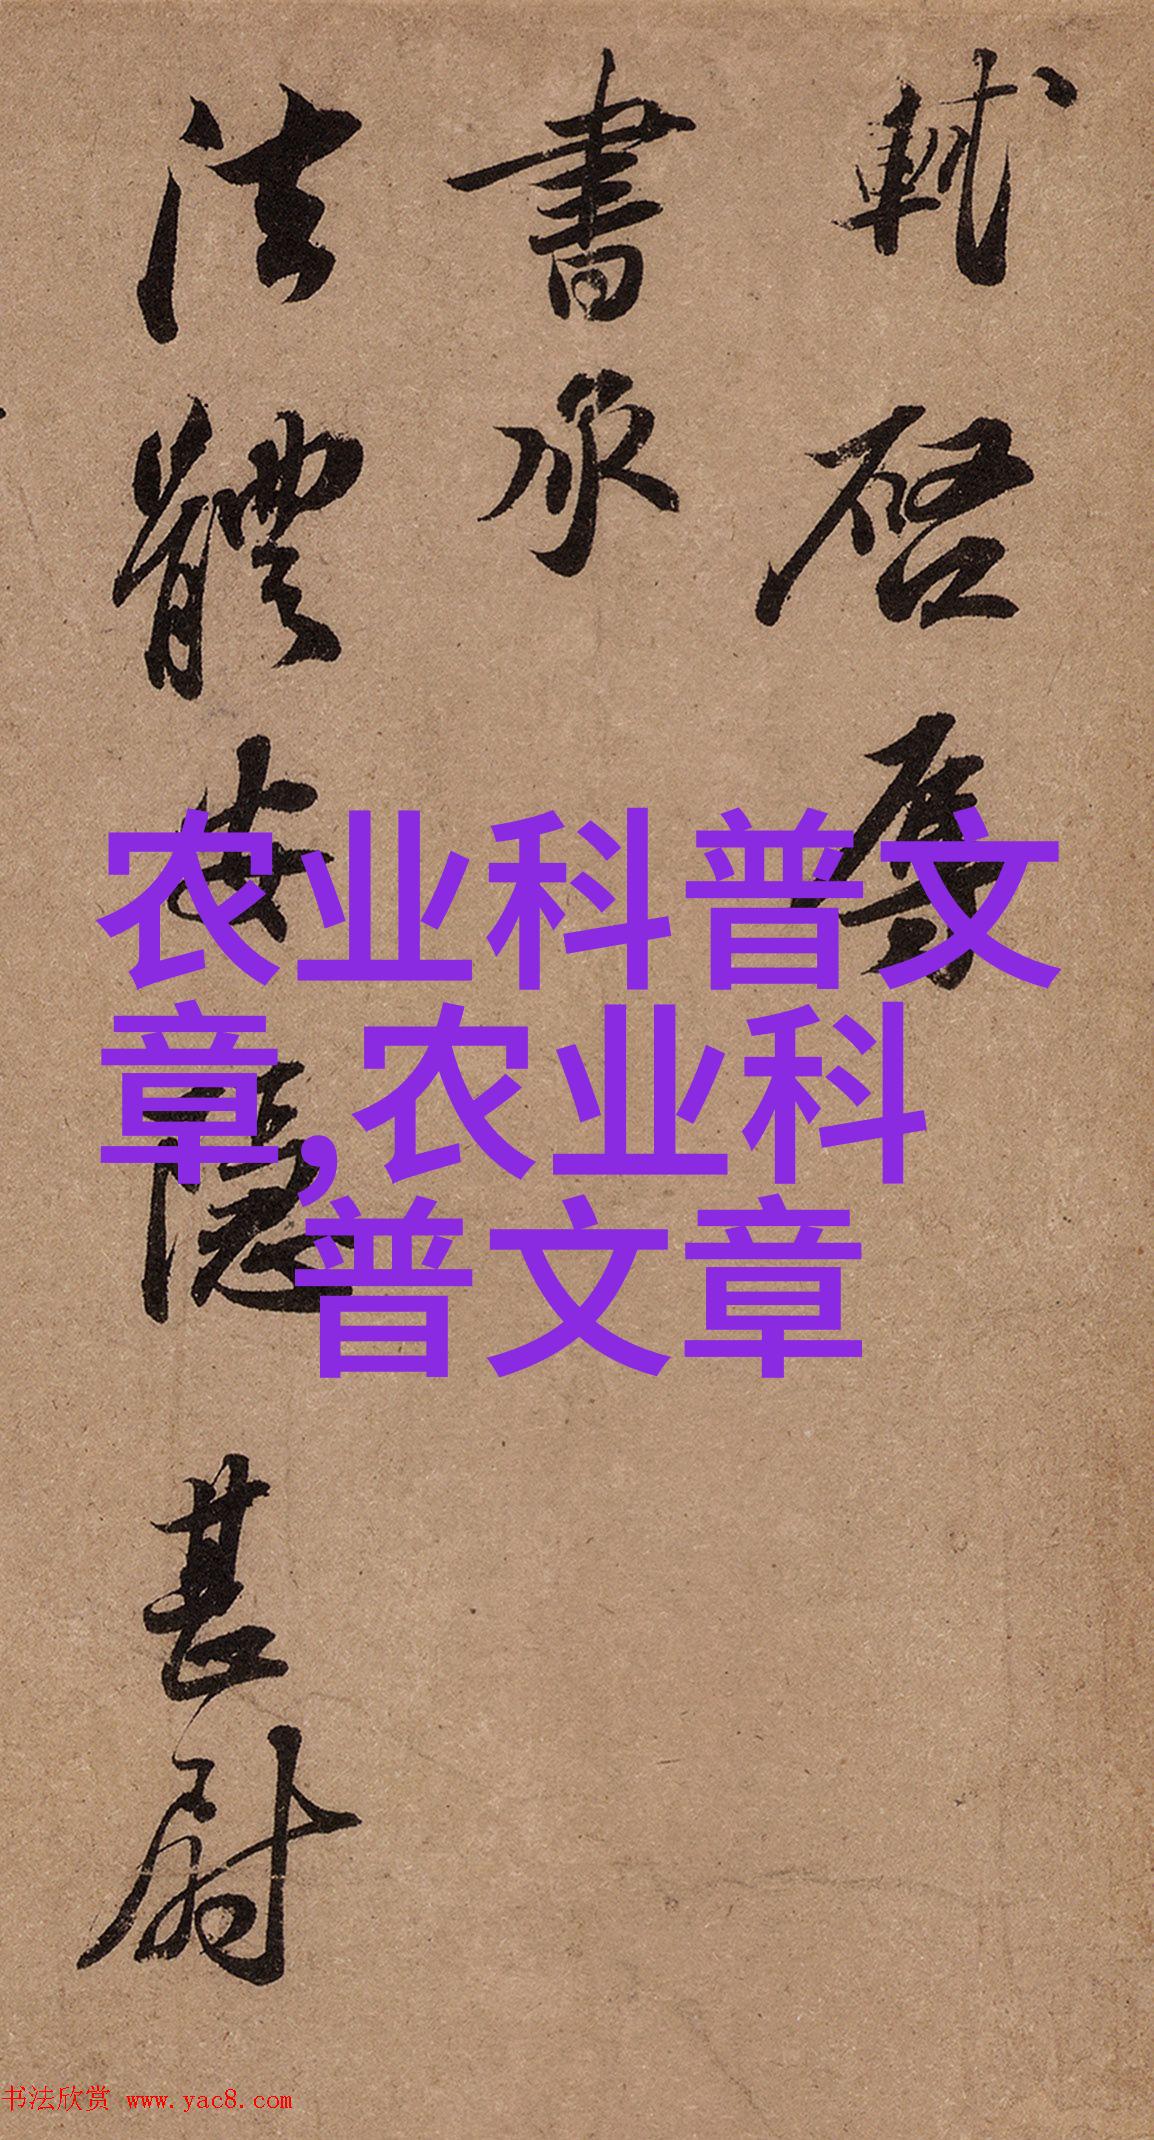 軾啓辱
書承
法體安隱甚慰
农业科普文
章,农业科
普文章
书法欣赏 www.yac8.com